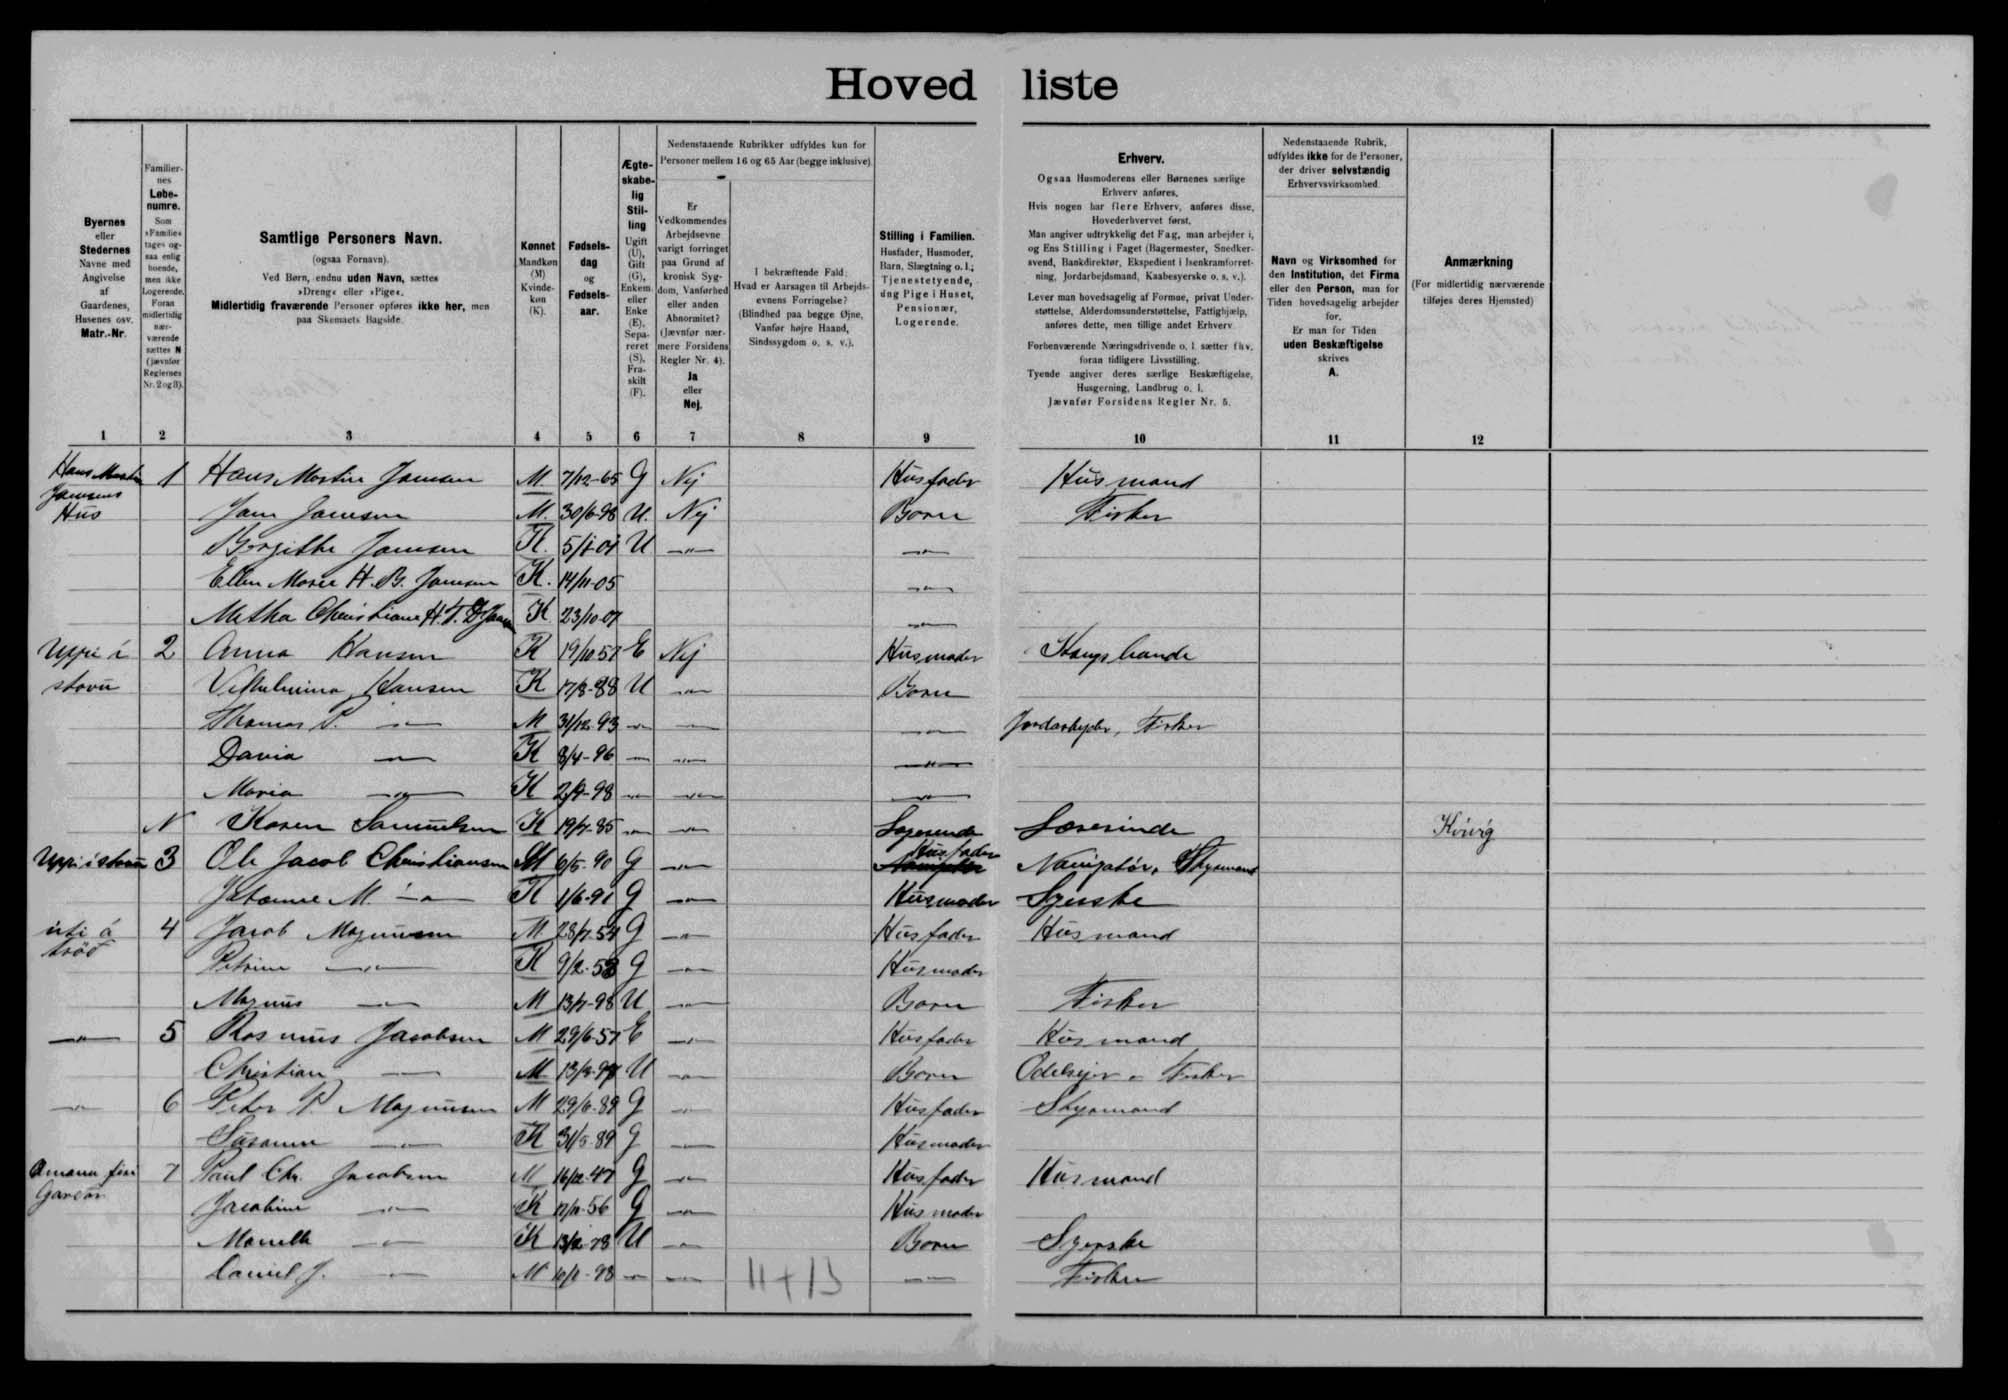 Hoved liste
Byernes
eller
Stedernes
Navne med
Angivelse
af
Gaardenes,
Husenes osv.
Matr.-Nr.
Familier-
nes
Løbe-
numre.
Som
»Familie«
tages og-
saa enlig
boende,
men ikke
Logerende.
Foran
midlertidig
nær-
værende
sættes N
(jævnfør
Reglernes
Nr. 2 og 3).
Samtlige Personers Navn.
(ogsaa Fornavn).
Ved Børn, endnu uden Navn, sættes
»Dreng« eller »Pige«.
Midlertidig fraværende Personer opføres ikke her, men
paa Skemaets Bagside.
Kønnet
Mandkøn
(M)
Kvinde-
køn
(K).
Fødsels-
dag
og
Fødsels-
aar.
Ægte-
skabe-
lig
Stil-
ling
Ugift
(U),
Gift
(G),
Enkem.
eller
Enke
(E),
Sepa-
reret
(S),
Fra-
skilt
(F).
Nedenstaaende Rubrikker udfyldes kun for
Personer mellem 16 og 65 Aar (begge inklusive).
Er
Vedkommendes
Arbejdsevne
varigt forringet
paa Grund af
kronisk Syg-
dom, Vanførhed
eller anden
Abnormitet?
(Jævnfør nær-
mere Forsidens
Regler Nr. 4).
Ja
eller
Nej.
I bekræftende Fald:
Hvad er Aarsagen til Arbejds-
evnens Forringelse?
(Blindhed paa begge Øjne,
Vanfør højre Haand,
Sindssygdom o. s. v.).
Stilling i Familien.
Husfader, Husmoder,
Barn, Slægtning o. l.;
Tjenestetyende,
ung Pige i Huset,
Pensionær,
Logerende.
Erhverv.
Ogsaa Husmoderens eller Børnenes særlige
Erhverv anføres.
Hvis nogen har flere Erhverv, anføres disse,
Hovederhvervet først.
Man angiver udtrykkelig det Fag, man arbejder i,
og Ens Stilling i Faget (Bagermester, Snedker-
svend, Bankdirektør, Ekspedient i Isenkramforret-
ning, Jordarbejdsmand, Kaabesyerske o. s. v.).
Lever man hovedsagelig af Formue, privat Under-
støttelse, Alderdomsunderstøttelse, Fattighjælp,
anføres dette, men tillige andet Erhverv.
Forhenværende Næringsdrivende o. l. sætter fhv.
foran tidligere Livsstilling.
Tyende angiver deres særlige Beskæftigelse,
Husgerning, Landbrug o. l.
Jævnfør Forsidens Regler Nr. 5.
Nedenstaaende Rubrik,
udfyldes ikke for de Personer,
der driver selvstændig
Erhvervsvirksomhed.
Navn og Virksomhed for
den Institution, det Firma
eller den Person, man for
Tiden hovedsagelig arbejder
for.
Er man for Tiden
uden Beskæftigelse
skrives
A.
Anmærkning
(For midlertidig nærværende
tilføjes deres Hjemsted)
1 2 3 4 5 6 7 8 9 10 11 12
Hans Martin 1 Hans Martin Jansen M 7/12-65 G Nej Husfader Husmand
Jansens
Hus Jans Jansen M. 30/6-98 U. Nej Barn Fisker
Jansen K. U
Ellen Marie H. B. Jansen K. 14/11-05
Metha Christiane K 23/10-07
Uppi í 2 Anna Hansen K 19/10 57 E Nej Husmoder
stovu Vilhelmina Hansen K 17/8-88 U Barn
Thomas P. M 31/12-93 Fisker
K 8/4-96
Maria K 2/9-98
N Karen Samuelsen K 19/7-85 Logerende Lærerinde Kvivig
Uppi í stovu 3 Ole Jacob Christiansen M 6/5-90 G Husfader Navigatör, Styrmand
M. K G Husmoder Syerske
úti á 4 Jacob Magnussen M G Husfader Husmand
tröð
Petrine K G Husmoder
Magnus M 13/7-98 U Barn Fisker
5 Rasmus Jacobsen M 29/6-57 E Husfader Husmand
Christian M U Barn Odelsejer Fisker
6 Peter P. Magnussen M 29/6-89 G Husfader Styrmand
Susanne K 31/5-89 G Husmoder
7 Paul Chr. Jacobsen M 16/12-47 G Husfader Husmand
Jacobine K G Husmoder
K U Barn Syerske
Daniel J. M Fisker
11 + 13